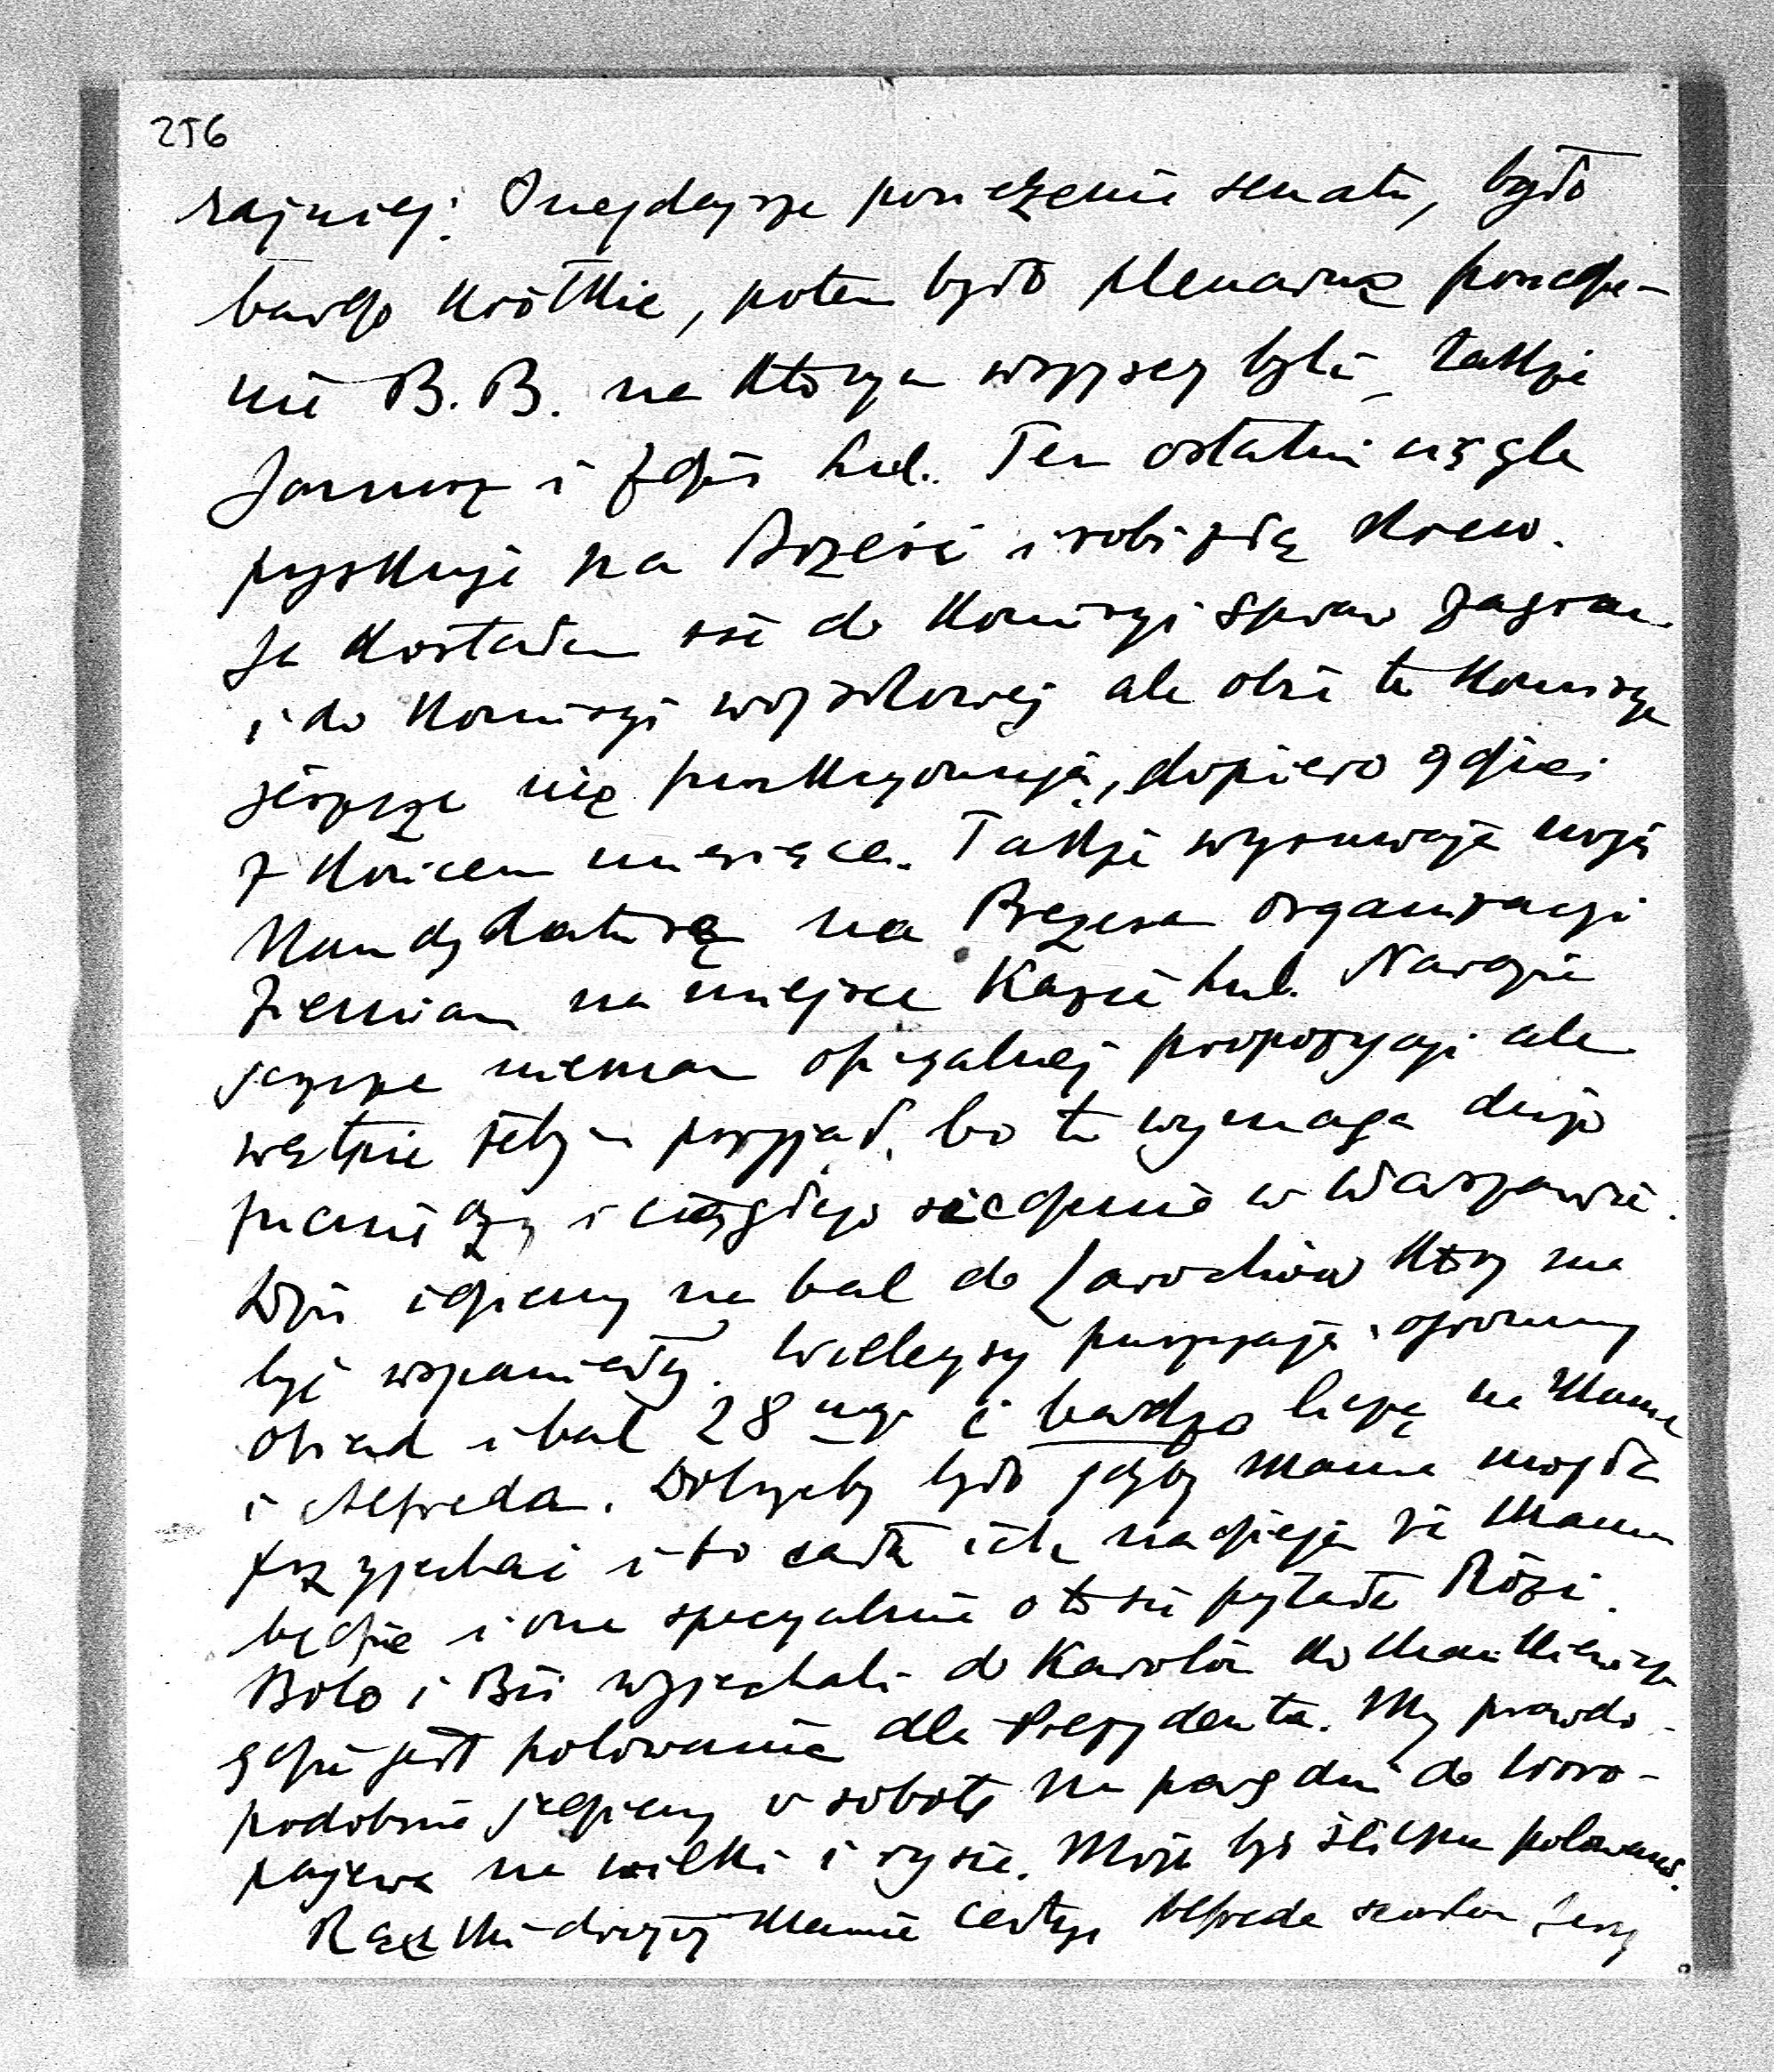 256
rajniej. Onegdajsze posiedzenie senatu, było
bardzo krótkie, potem było plenarne posiedze-
nie B.B. na którym wszyscy byli, także
Janusz i Zdziś Lub. Ten ostatni ciągle
pyskuje na Brześć i robi złą krew.
Ja dostałem się do Komisyi spraw zagran.
i do Komisyi wojskowej ale obie te Komisye
jeszcze nie funkcyonują, dopiero gdzieś
z końcem miesiąca. Także wysuwają moją
Kandydaturę na Prezesa organizacyi
Ziemian na miejsce Kazia Lub. Narazie
jeszcze niemam oficyalnej propozycyi ale
wątpie żebym przyjął, bo to wymaga dużo
pieniędzy i ciągłego siedzenia w Warszawie.
Dziś idziemy na bal do który ma
być wspaniały. Willeysy puszczają ogromny
obiad i bal 28 ego i bardzo liczą na Mamę
i Alfreda. Dobrzeby było gdyby Mama mogła
przyjechać i to cała ich nadzieja że Mama
będzie i ona specyalnie o to się pytała Rózi.
Bolo i Biś wyjechali do Karola do Mańkiewicz
gdzie jest polowanie dla Prezydenta. My prawdo-
podobnie jedziemy w sobotę na parę dni do Woro-
pajewa na wilki i rysie. Może być śliczne polowanie.
Rączki drogiej Mamie całuję Alfreda